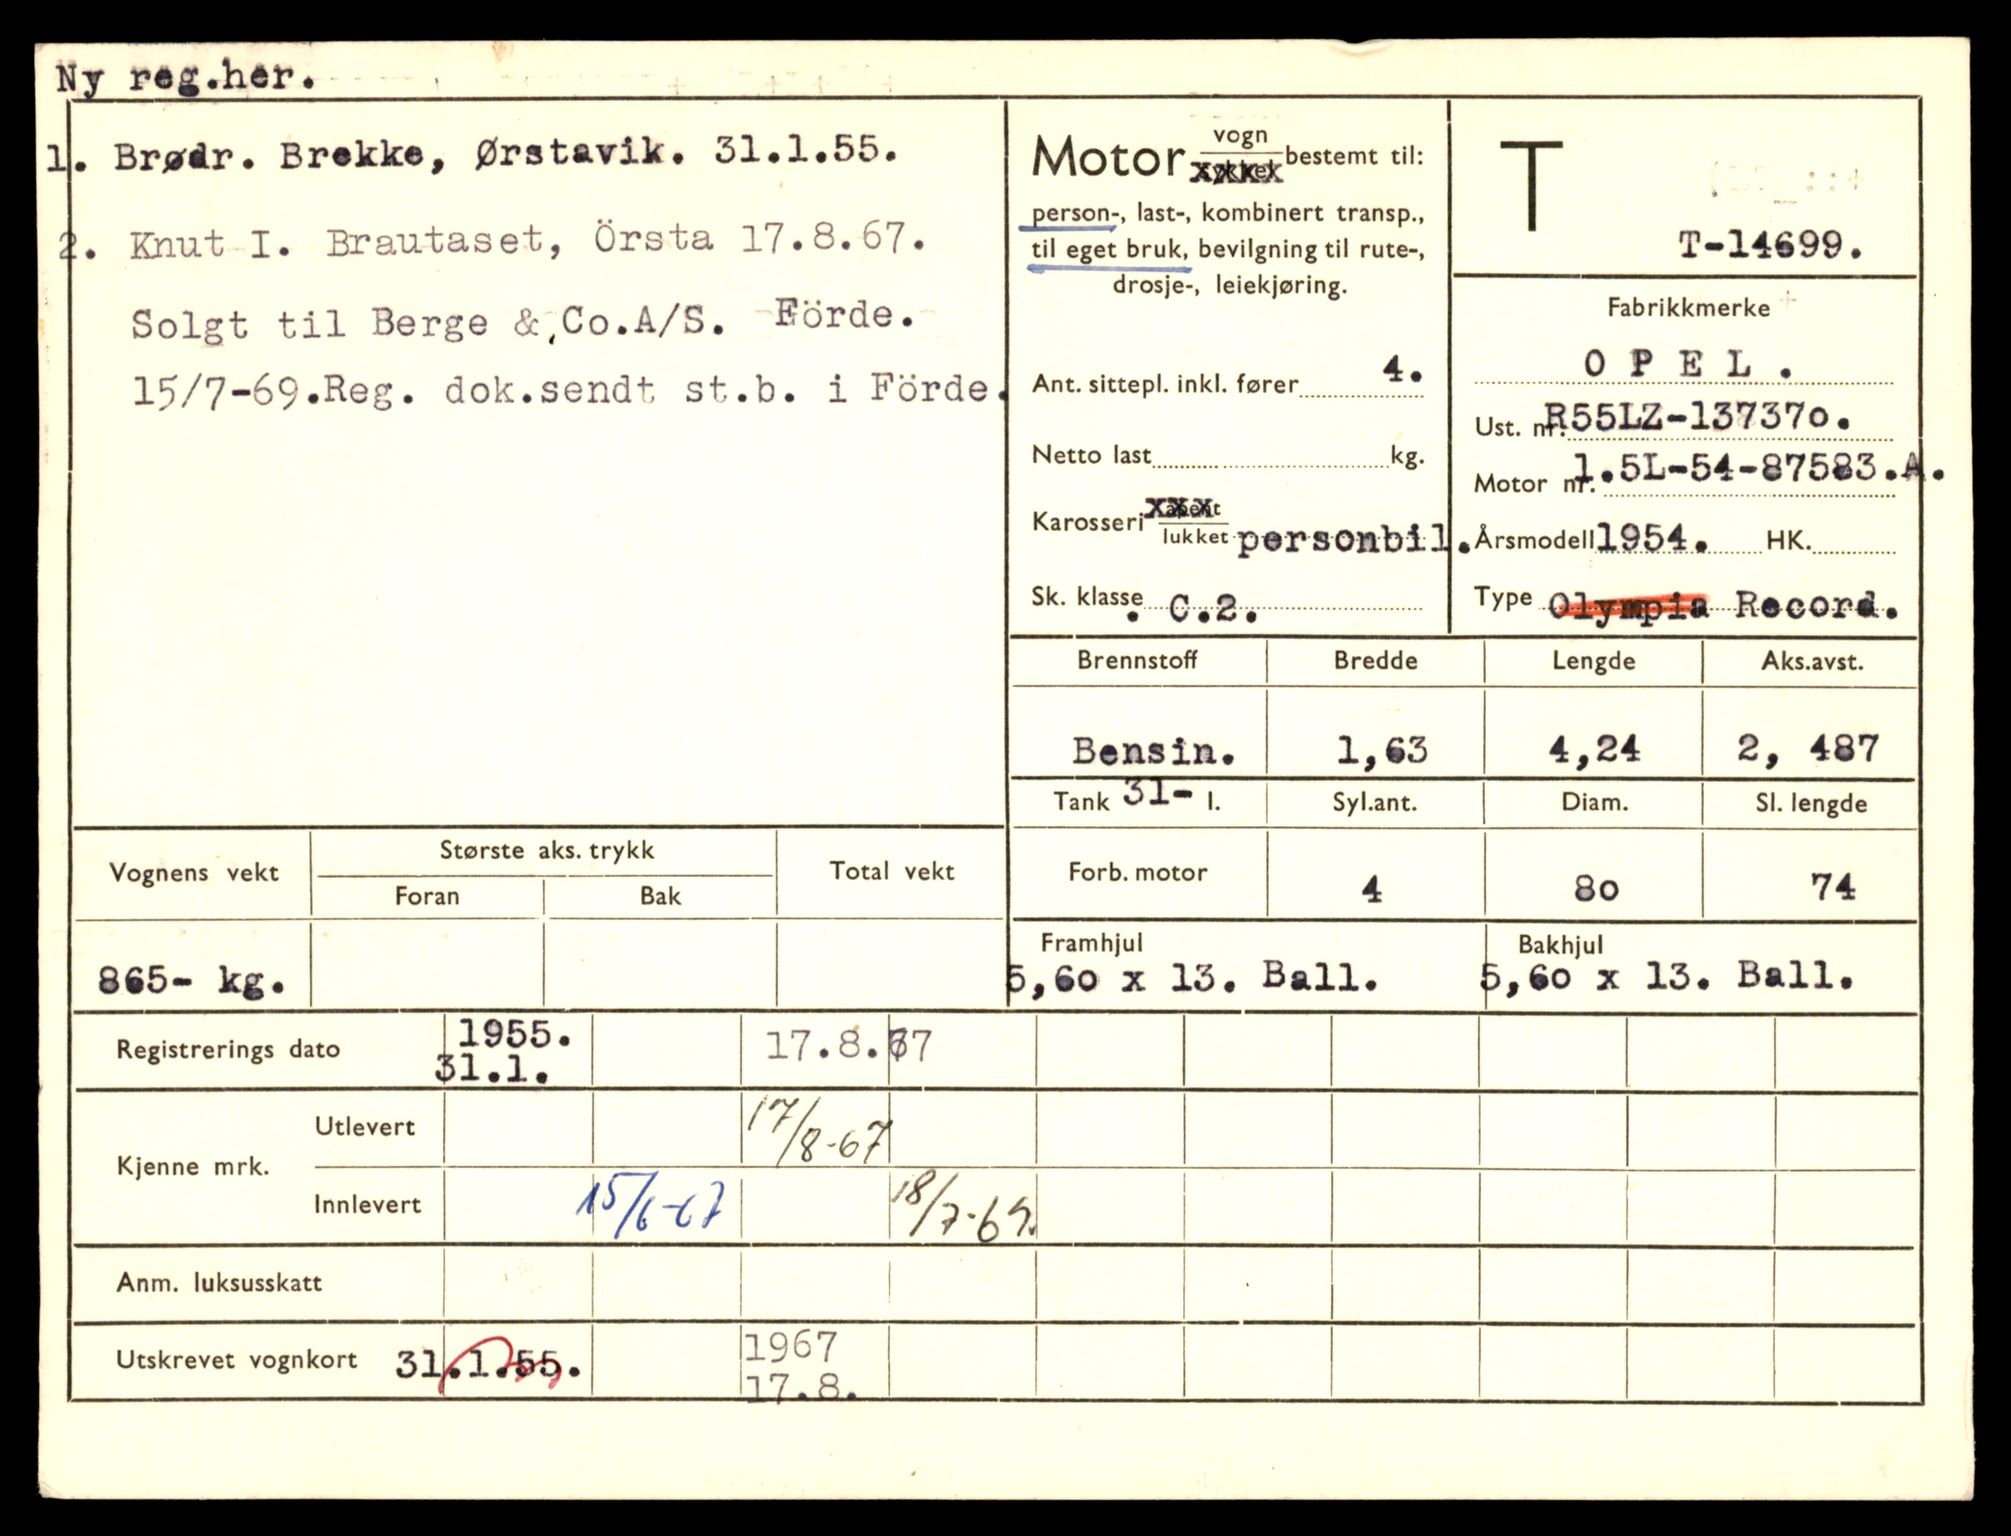 Ny reg.her.
1. Brødr. Brekke, Ørstavik. 31.1.55.
2. Knut I. Brautaset, Örsta 17.8.67.
Solgt til Berge & Co.A/S. Förde.
15/7-69.Reg. dok.sendt st.b. i Förde.
Motor vogn bestemt til:
person-, last-, kombinert transp.,
til eget bruk, bevilgning til rute-,
drosje-, leiekjøring.
Ant. sittepl. inkl. fører 4.
Netto last kg.
Karosseri åpent
lukket personbil.
Sk. klasse . C.2.
T
T-14699.
Fabrikkmerke
O P E L .
Ust. nr. R55LZ-137370.
Motor nr. 1.5L-54-87583.A.
Årsmodell 1954. HK.
Type Olympia Record.
Brennstoff Bredde Lengde Aks.avst.
Bensin. 1,63 4,24 2, 487
Tank 31- l. Syl.ant. Diam. Sl. lengde
Forb. motor 4 80 74
Framhjul Bakhjul
5,60 x 13. Ball. 5,60 x 13. Ball.
Vognens vekt Største aks. trykk Total vekt
Foran Bak
865- kg.
Registrerings dato 1955. 17.8.67
31.1.
Kjenne mrk. Utlevert 17/8-67
Innlevert 15/6-67 18/7-69.
Anm. luksusskatt
Utskrevet vognkort 31.1.55. 1967
17.8.